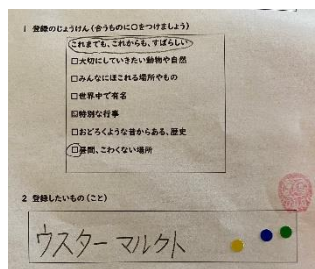 1 登録のじょうけん（合うものに○をつけましょう）
これまでも、これからも、すばらしい
□大切にしていきたい動物や自然
□みんなにほこれる場所やもの
□世界中で有名
□特別な行事
□おどろくような昔からある、歴史
□昼間、こわくない場所
2 登録したいもの（こと）
ウスターマルクト